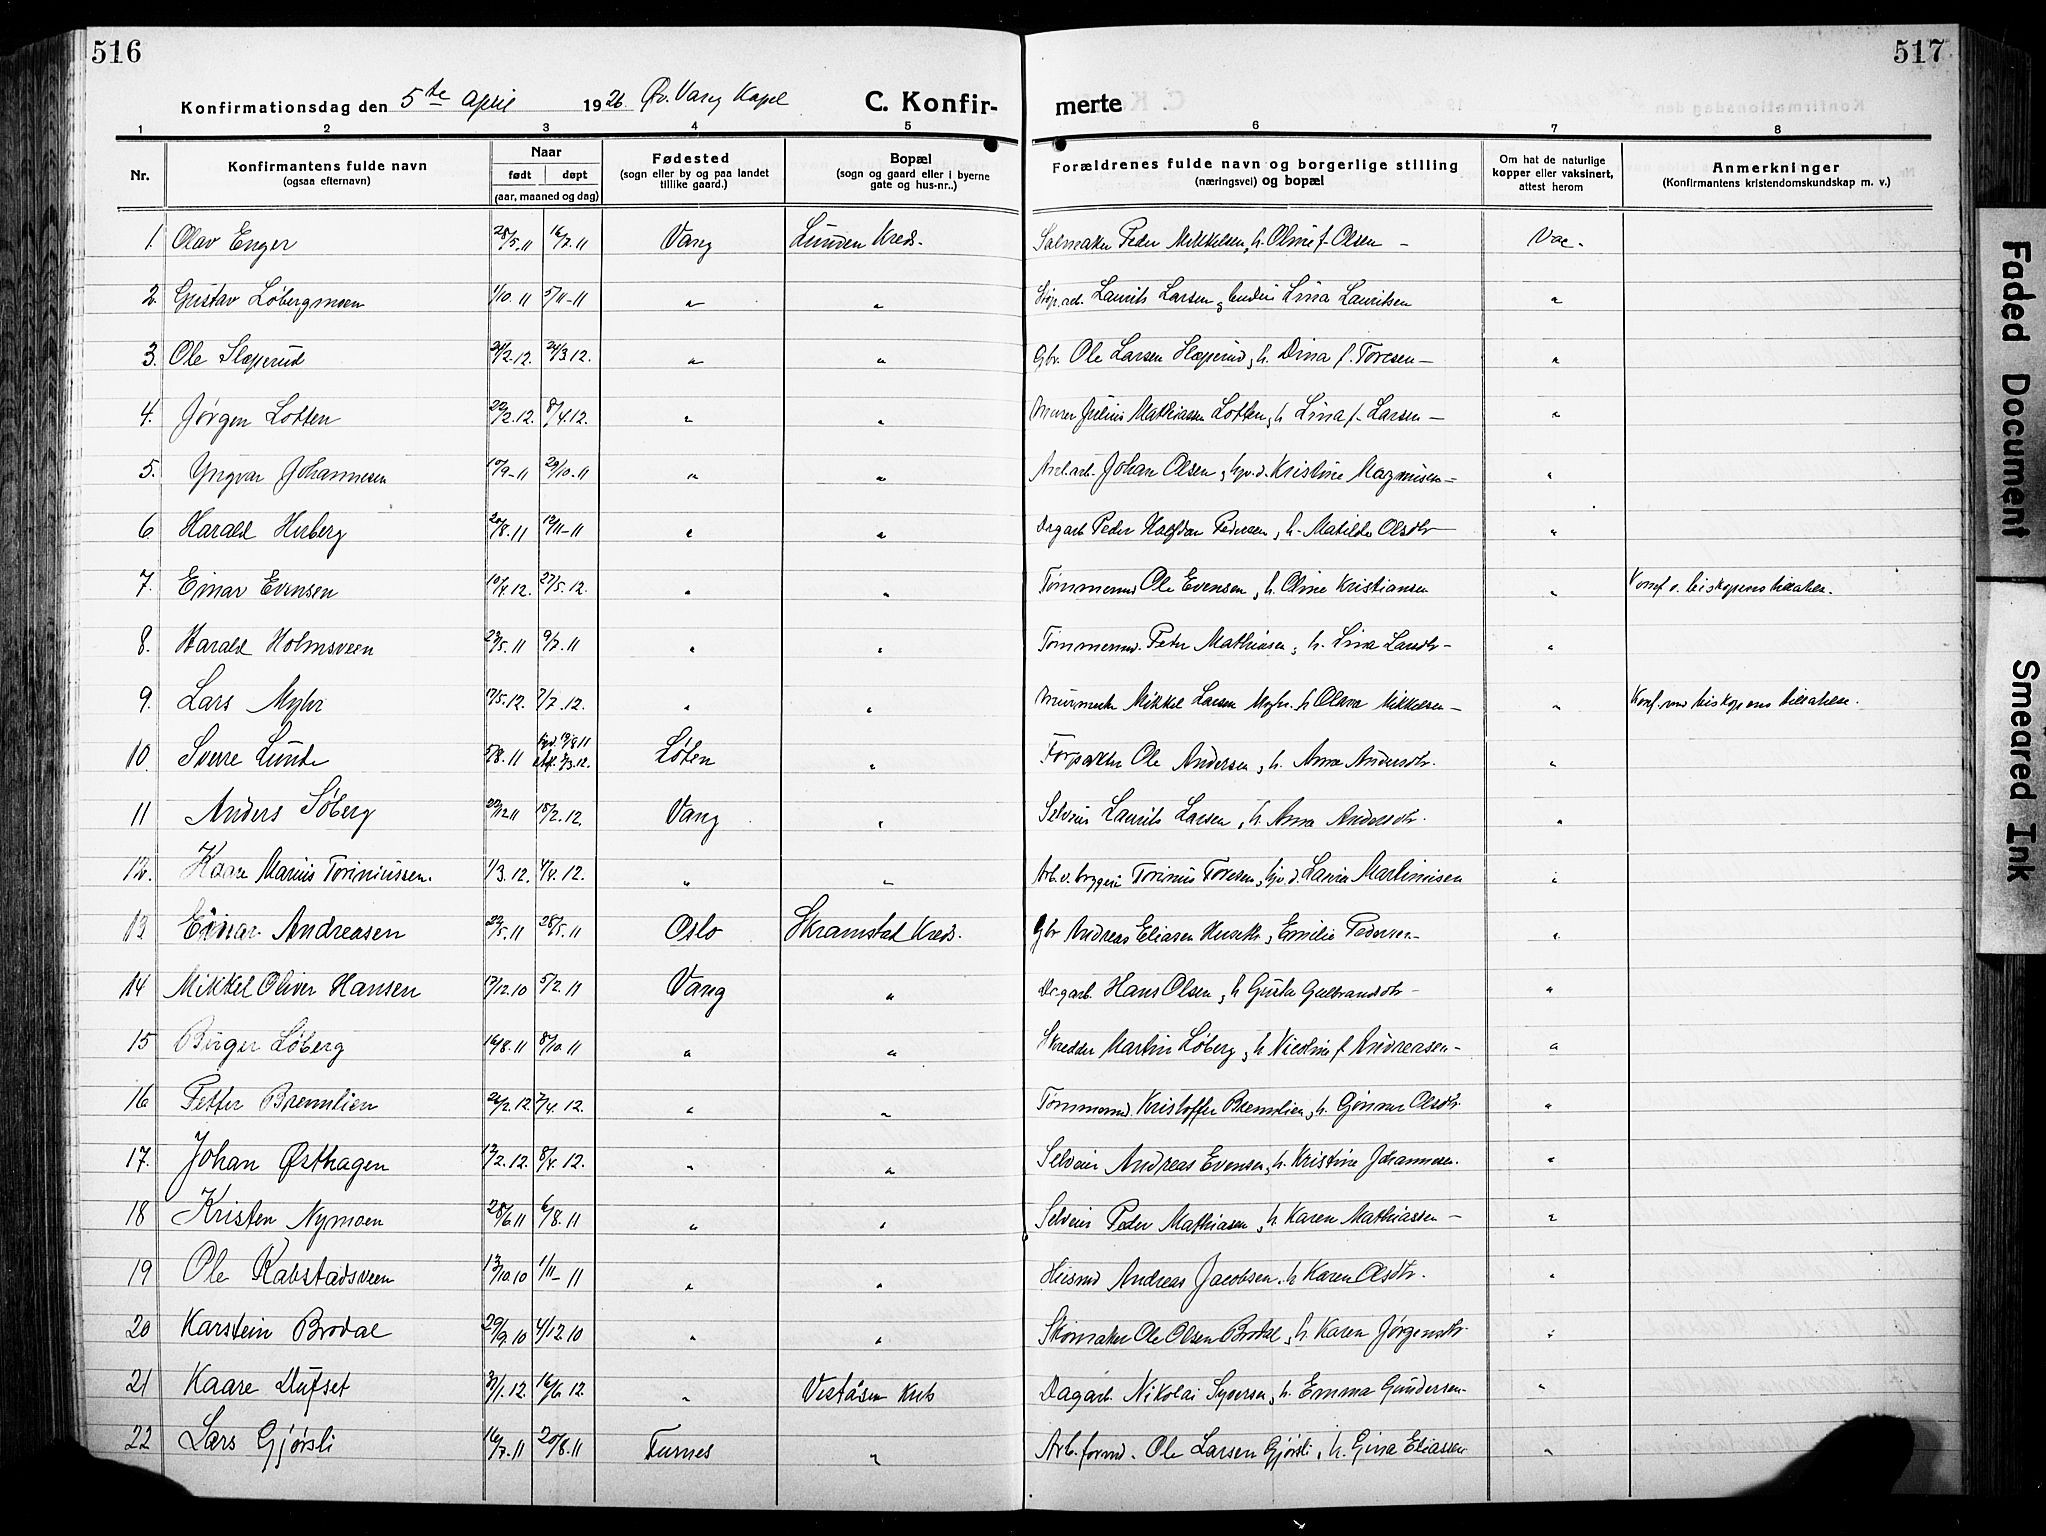 516
517
Konfirmationsdag den 5te april 1926. Øv. Vang Kapel C. Konfir- merte
1 2 3 4 5 6 7 8
Nr. Konfirmantens fulde navn (ogsaa efternavn) Naar født døpt (aar, maaned og dag) Fødested (sogn eller by og paa landet tillike gaard.) Bopæl (sogn og gaard eller i byerne gate og hus-nr..) Forældrenes fulde navn og borgerlige stilling (næringsvei) og bopæl Om hat de naturlige kopper eller vaksinert, attest herom Anmerkninger (Konfirmantens kristendomskundskap m. v.)
1. Olav Enger 28/5.11 16/7.11 Vang Lunden Kreds. Salmaker Peder Mikkelsen, h. Oline f. Olsen - Vac.
2. Gustav Løbergmoen 1/10.11 5/11-11 " " Laurits Larsen, Lina Lauritsen "
3. Ole Slæperud 21/2.12. 24/3.12. " " Gbr. Ole Larsen Slæperud, h. Dina f. Toresen - "
4. Jørgen Lotten 22/2.12. 8/4.12. " " Murer Julius Mathiassen Lotten, h Lina f. Larsen - "
5. Yngvar Johannesen 10/9-11 29/10-11 " " Johan Olsen, Kristine Magnusen - "
6 Harald Herberg 20/8.11 12/11-11 " " Dagarb Peder Halfdan Pedersen, h. Matilde Olsdtr "
7. Einar Evensen 10/4.12. 27/5.12. " " Tømmermd Ole Evensen, h. Oline Kristiansen " Konf. v. biskopens tillatelse.
8. Harald Holmsveen 23/5.11 9/7.11 " " Tømmermd. Peter Mathiasen, h. Lina Larsdtr - "
9. Lars Myhr 17/5.12. 7/7.12. " " Murmester Mikkel Larsen Myhr. h Olava Mikkelsen - " Konf. med biskopens tillatelse.
10. Sverre Lunde 5/8.11 19/8 11 7/3.12. Løten " Forpakter Ole Andersen, h. Anna Andersdtr. "
11 Anders Søberg 22/12 11 18/2.12. Vang " Selveier Laurits Larsen, h. Anna Andersdtr. "
12. Kaare Marius Toriniussen. 1/3.12. 4/4.12. " " Arb. v. bryggeri Torinius Toresen, Laura Martinusen "
13 Einar Andreasen 22/5.11 28/5.11 Oslo Skramstad Kreds. Gbr Andreas Eliasen, Emilie Pedersen - "
14 Mikkel Oliver Hansen 17/12.10 5/2.11 Vang " Dagarb. Hans Olsen, h Gusta Gulbrandsdtr - "
15 Birger Løberg 16/8.11 8/10.11 " " Skredder Martin Løberg, h Nicoline f Andreasen - "
16 Petter Brennlien 26/2.12 7/4.12. " " Tømmermd. Kristoffer Brennlien, h. Gunnor Olsdtr. "
17. Johan Østhagen 13/2.12. 8/4.12. " " Selveier Andreas Evensen, h. Kristine Johannesen. "
18 Kristen Nymoen 28/6 11 6/8.11 " " Selveier Peder Mathiasen, h. Karen Mathiassen - "
19 Ole Kabstadsveen 13/10.10 1/11-11 " " Husmd Andreas Jacobsen, h Karen Olsdtr. "
20 Karstein Brodal 29/9.10 4/12.10 " " Skomaker Ole Olsen Brodal, h. Karen Jørgensdtr "
21 Kaare Dufset 31/1.12. 16/6.12 " Veståsen Kreds Dagarb. Nikolai Syversen, h. Emma Gundersen - "
22 Lars Gjørsli 16/7.11 20/8.11 Furnes " Arb. formd. Ole Larsen Gjørsli, h. Gina Eliassen "
Faded Document
Smeared Ink